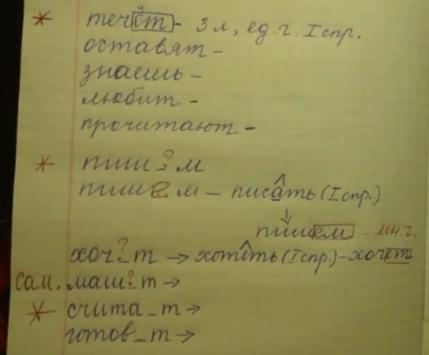 * течёт - 3 л, ед.ч. I спр.
оставят -
знаешь -
любит -
прочитают -
* пиш?м
пишем - писать (I спр.)
пишем - мн ч.
хоч?т → хотеть (I спр.) - хочет
сам. маш?т →
* счита_т →
готов_т →